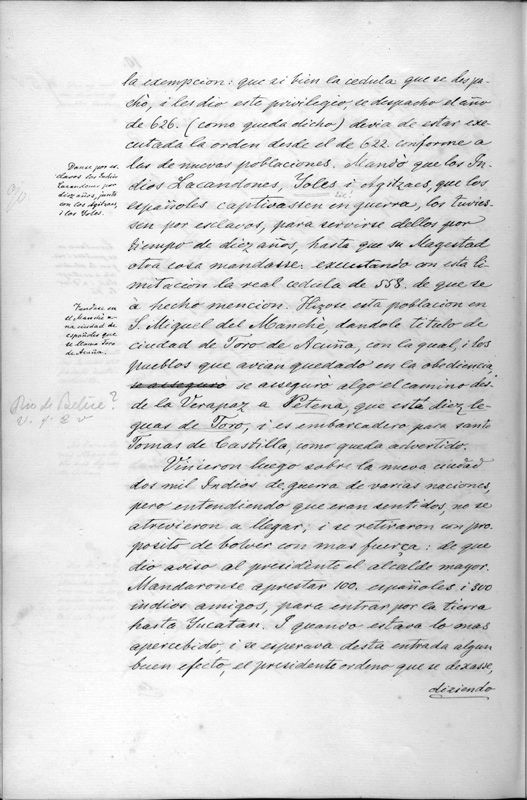 la exempcion: que si bien la cedula que se despa-
chò, i les dio este privilegio, se despacho el año
de 626. (como queda dicho) devia de estar exe-
cutada la orden desde el de 622. conforme a
las de nuevas poblaciones. Mandò que los In-
dios Lacandones, Yoles i Agitzaes, que los
españoles captivassen en guerra, los tuvies-
sen por esclavos, para servirse dellos por
tiempo de diez años, hasta que su Magestad
otra cosa mandasse: executando con esta li-
mitacion la real cedula de 558. de que se
à hecho mencion. Hizose esta poblacion en
S. Miguel del Manchè, dandole titulo de
ciudad de Toro de Acuña, con la qual, i los
pueblos que avian quedado en la obediencia,
se asseguro se asseguró algo el camino des-
de la Verapaz a Petena, que està diez le-
guas de Toro, i es embarcadero para santo
Tomas de Castilla, como queda advertido.
Vinieron luego sobre la nueva ciudad
dos mil Indios de guerra de varias naciones,
pero entendiendo que eran sentidos, no se
atrevieron a llegar; i se retiraron con pro-
posito de bolver con mas fuerça: de que
dio aviso al presidente el alcalde mayor.
Mandaronse aprestar 100. españoles i 300
indios amigos, para entrar por la tierra
hasta Yucatan. I quando estava lo mas
apercebido, i se esperava desta entrada algun
buen efecto, el presidente ordeno que se dexasse,
diziendo
Danse por es-
clavos los Indios
Lacandones por
diez años, junto
con los Agitzaes,
i los Yoles.
Fundase en
el Manchè u-
na ciudad de
españoles que
se llama Toro
de Acuña.
Rio de Belice?